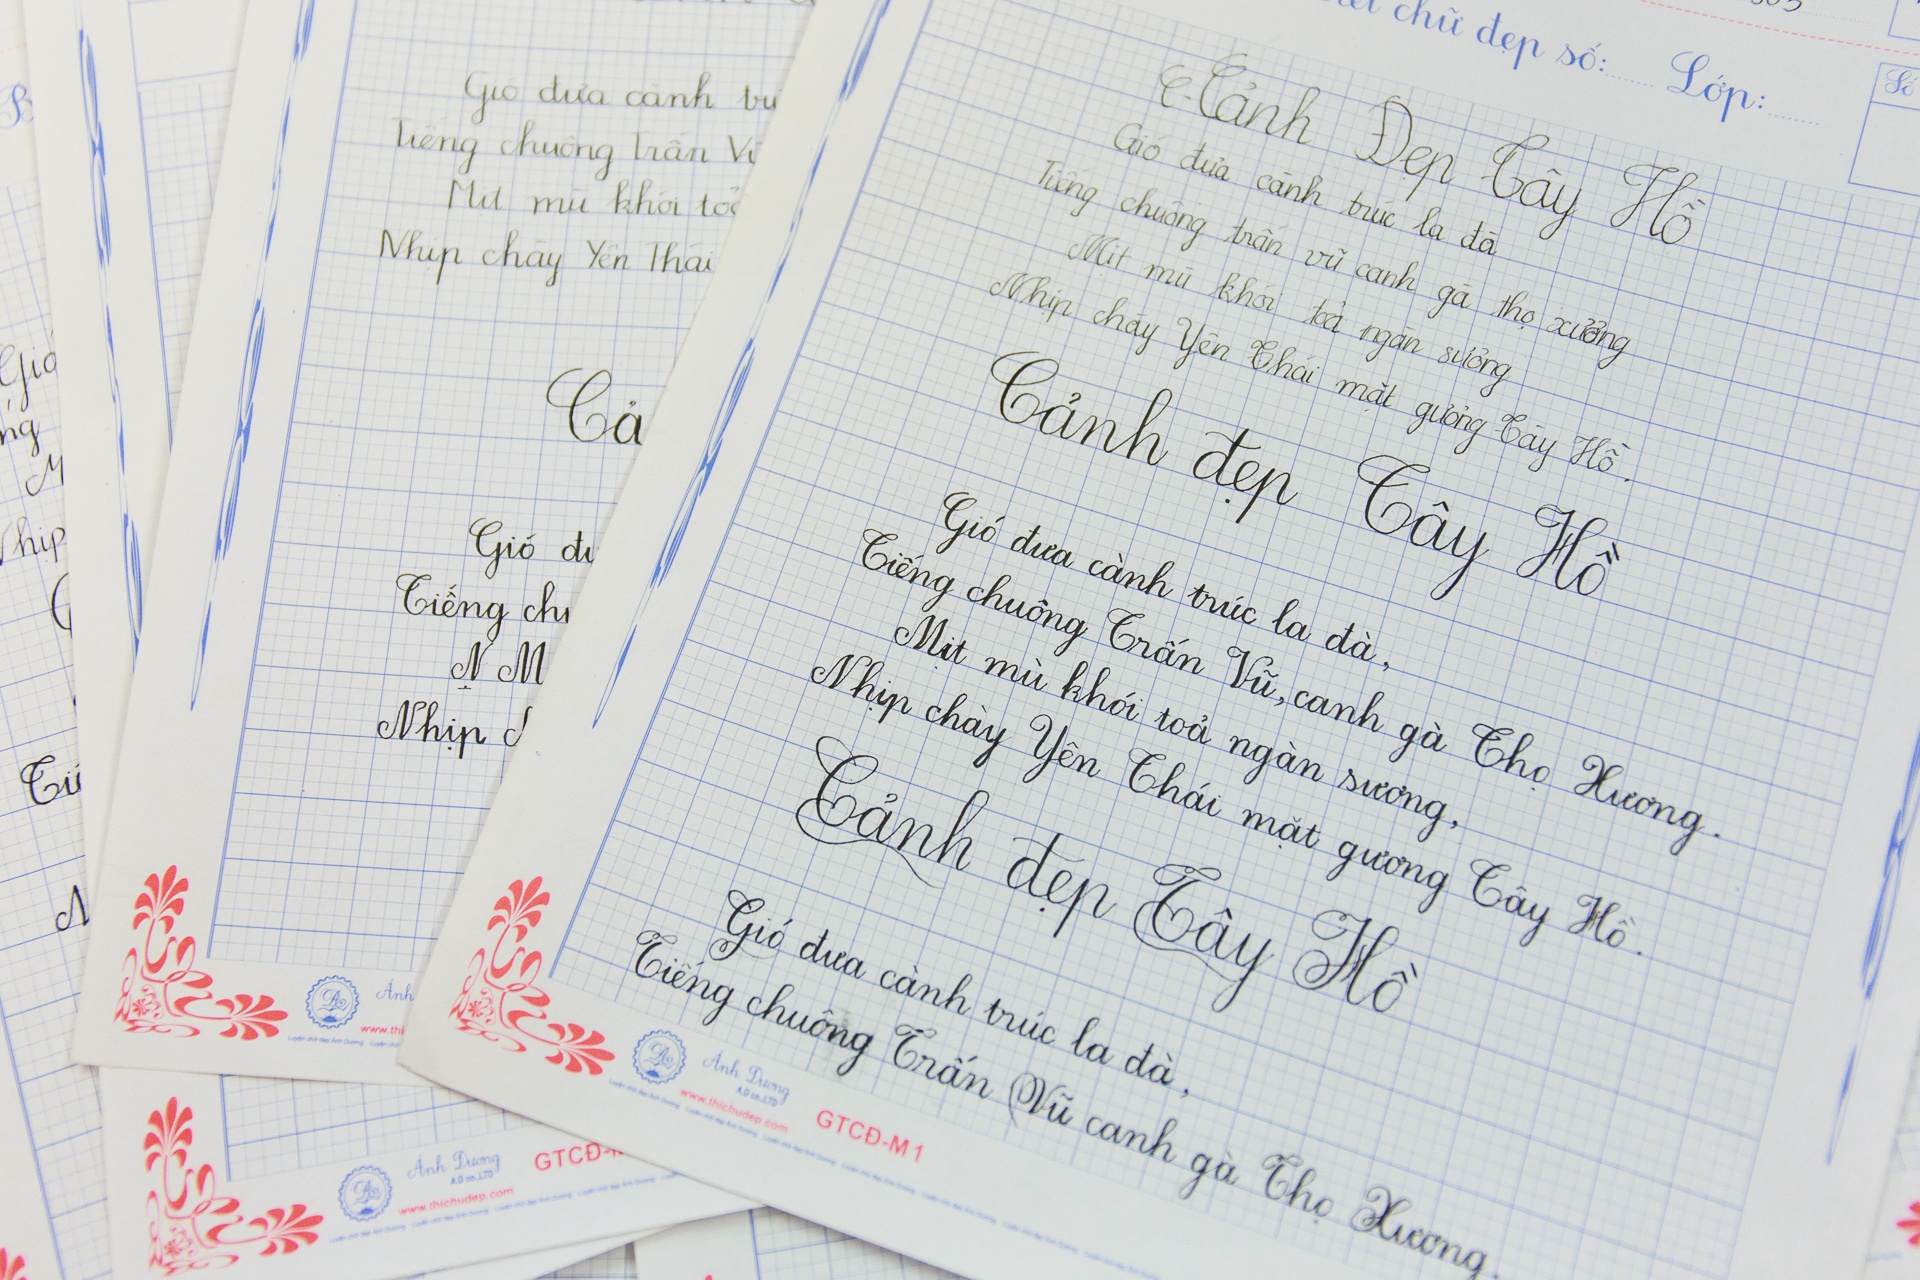 chữ đẹp số: Lớp:
Cảnh Đẹp Tây Hồ
Gió đưa cành trúc la đà
Tiếng chuông trấn vũ canh gà thọ xương
Mịt mù khói toả ngàn sương
Nhịp chày Yên Thái mặt gương Tây Hồ.
Cảnh đẹp Tây Hồ
Gió đưa cành trúc la đà,
Tiếng chuông Trấn Vũ, canh gà Thọ Xương.
Mịt mù khói toả ngàn sương,
Nhịp chày Yên Thái mặt gương Tây Hồ.
Cảnh đẹp Tây Hồ
Gió đưa cành trúc la đà,
Tiếng chuông Trấn Vũ canh gà Thọ Xương.
Ánh Dương
A.D co.,LTD
www.thichudep.com
GTCĐ-M1
Gió đưa cành
Tiếng chuông Trấn
Mịt mù khói toả
Nhịp chày Yên Thái
Cả
Gió
Tiếng
N M
Nhịp
Ánh
Ánh Dương
A.D co.,LTD
www.thichudep.com
GTCĐ-
Gió
ng
M
Nhịp